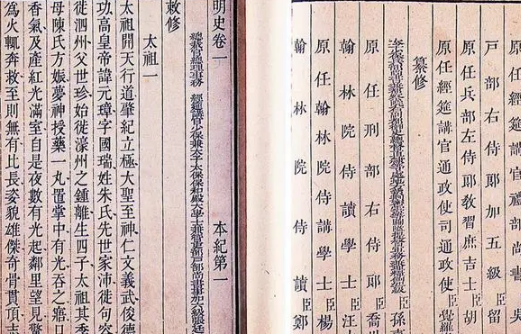 原任經筵講官禮部尚書臣吳
戶部右侍郎加五級臣留
原任兵部左侍郎教習庶吉士臣胡
原任經筵講官通政使司通政使臣覺羅
纂修
孫嘉
原任刑部右侍郎臣喬
翰林院侍讀學士臣汪
原任翰林院侍講學士臣楊
翰林院侍讀臣鄭
明史卷一 本紀第一
總裁官總理事務經筵講官少保兼太子太保保和殿大學士兼管吏部戶部尚書事加六級張廷
敕修
太祖一
太祖開天行道肇紀立極大聖至神仁文義武俊德
功高皇帝諱元璋字國瑞姓朱氏先世家沛徙句容
徙泗州父世珍始徙濠州之鍾離生四子太祖其季
母陳氏方娠夢神授藥一丸置掌中有光吞之寤口
香氣及產紅光滿室自是夜數有光起鄰里望見驚
爲火輒奔救至則無有比長姿貌雄傑奇骨貫頂志